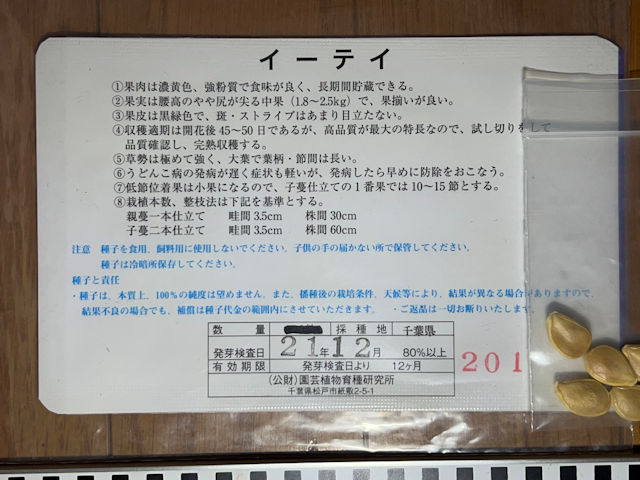 イーテイ
①果肉は濃黄色、強粉質で食味が良く、長期間貯蔵できる。
②果実は腰高のやや尻が尖る中果（1.8〜2.5kg）で、果揃いが良い。
③果皮は黒緑色で、斑・ストライプはあまり目立たない。
④収穫適期は開花後45〜50日であるが、高品質が最大の特長なので、試し切りをして
品質確認し、完熟収穫する。
⑤草勢は極めて強く、大葉で葉柄・節間は長い。
⑥うどんこ病の発病が遅く症状も軽いが、発病したら早めに防除をおこなう。
⑦低節位着果は小果になるので、子蔓仕立ての１番果では10〜15節とする。
⑧栽植本数、整枝法は下記を基準とする。
親蔓一本仕立て 畦間3.5cm 株間30cm
子蔓二本仕立て 畦間3.5cm 株間60cm
注意 種子を食用、飼料用に使用しないでください。子供の手の届かない所で保管してください。
種子は冷暗所保存してください。
種子と責任
・種子は、本質上、100％の純度は望めません。また、播種後の栽培条件、天候等により、結果が異なる場合がありますので、
結果不良の場合でも、補償は種子代金の範囲内にさせていただきます。 ・ご返品は一切お断りいたします。
数量 採種地 千葉県
発芽検査日 21年12月 80%以上
有効期限 発芽検査日より 12ヶ月
（公財）園芸植物育種研究所
千葉県松戸市紙敷2-5-1
201